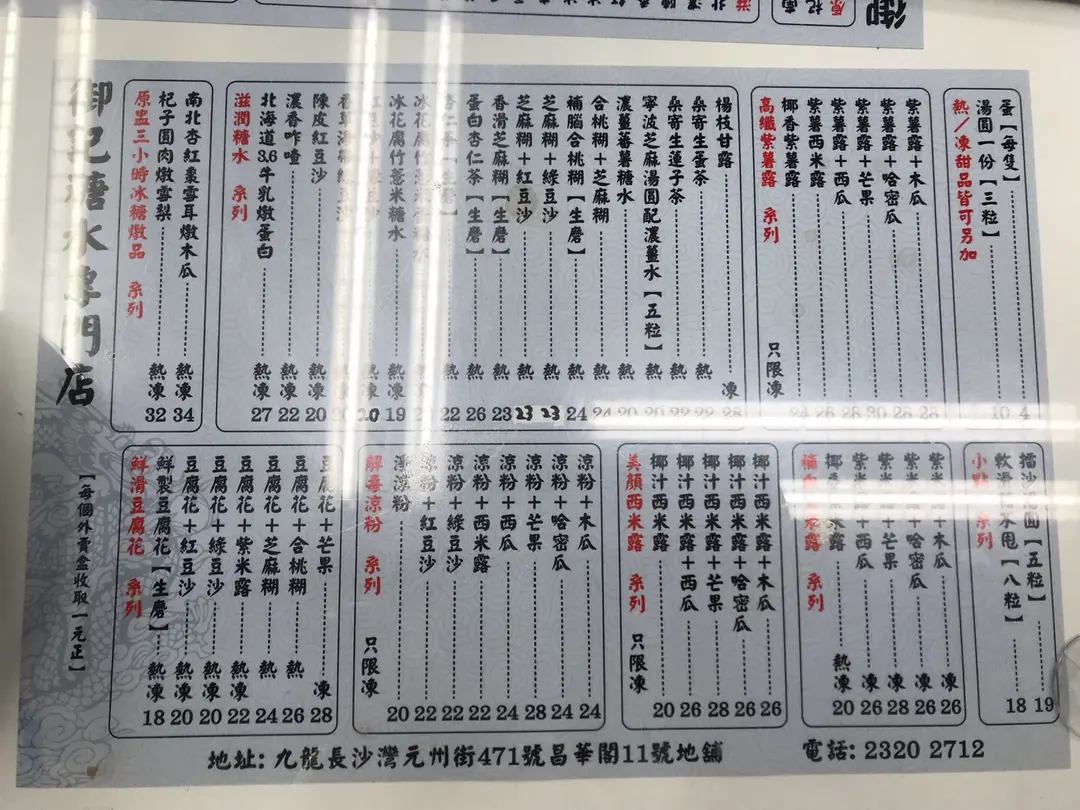 御記糖水專門店
【每個外賣盒收取一元正】
原盅三小時冰糖燉品 系列
杞子圓肉燉雪梨 熱凍 32
南北杏紅棗雪耳燉木瓜 熱凍 34
滋潤糖水 系列
北海道3.6牛乳燉蛋白 熱凍 27
濃香咋喳 熱凍 22
陳皮紅豆沙 熱凍 20
20
冰花腐竹薏米糖水 熱凍 19
冰花腐竹 水
杏仁茶【生磨】 熱 22
蛋白杏仁茶【生磨】 熱 26
香滑芝麻糊【生磨】 熱 23
芝麻糊+紅豆沙 熱 23
芝麻糊+綠豆沙 熱 23
補腦合桃糊【生磨】 熱 24
合桃糊+芝麻糊 熱 24
濃薑蕃薯糖水 熱 20
寧波芝麻湯圓配濃薑水【五粒】 熱
桑寄生蓮子茶 熱 22
桑寄生蛋茶 熱 22
楊枝甘露 凍 28
高纖紫薯露 系列 只限凍
椰香紫薯露 24
紫薯西米露 26
紫薯露+西瓜 28
紫薯露+芒果 30
紫薯露+哈密瓜 28
紫薯露+木瓜 28
熱/凍甜品皆可另加
湯圓一份【三粒】 10
蛋【每隻】 4
鮮滑豆腐花 系列
鮮製豆腐花【生磨】 熱凍 18
豆腐花+紅豆沙 熱凍 20
豆腐花+綠豆沙 熱凍 20
豆腐花+紫米露 熱凍 22
豆腐花+芝麻糊 熱 24
豆腐花+合桃糊 熱 26
豆腐花+芒果 凍 28
解毒涼粉 系列 只限凍
涼粉 20
涼粉+紅豆沙 22
涼粉+綠豆沙 22
涼粉+西米露 22
涼粉+西瓜 24
涼粉+芒果 28
涼粉+哈密瓜 24
涼粉+木瓜 24
美顏西米露 系列 只限凍
椰汁西米露 20
椰汁西米露+西瓜 26
椰汁西米露+芒果 28
椰汁西米露+哈密瓜 26
椰汁西米露+木瓜 26
系列
熱凍 20
紫米露+西瓜 凍 26
紫米露+芒果 凍 28
紫米露+哈密瓜 凍 26
紫米露+木瓜 凍 26
小點 系列
【八粒】 18
擂沙湯圓【五粒】 19
地址: 九龍長沙灣元州街471號昌華閣11號地舖
電話: 2320 2712